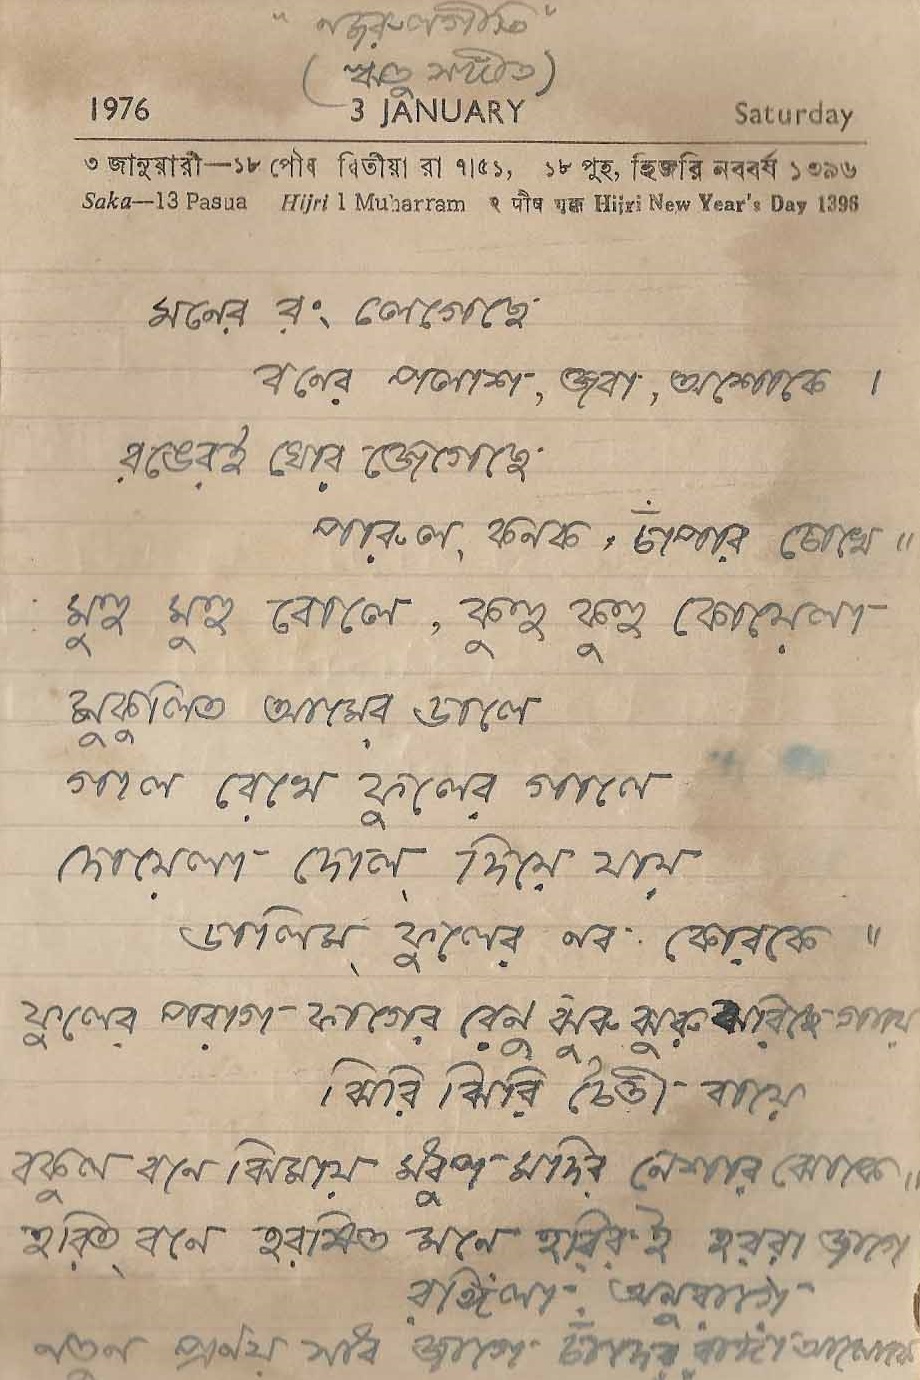 "নজরুলগীতি"
(ঋতু সঙ্গীত)
1976 3 JANUARY Saturday
৩ জানুয়ারী—১৮ পৌষ দ্বিতীয়া রা ৭।৫১, ১৮ পুহ, হিজরি নববর্ষ ১৩৯৬
Saka—13 Pausa Hijri 1 Muharram २ पौष शुक्ल Hijri New Year's Day 1396
মনের রং লেগেছে
বনের পলাশ, জবা, অশোকে ।
রঙেরই ঘোর জেগেছে
পারুল, কনক, চাঁপার চোখে ॥
মুহু মুহু বোলে, কুহু কুহু কোয়েলা
মুকুলিত আমের ডালে
গাল রেখে ফুলের গালে
দোয়েলা দোল দিয়ে যায়
ডালিম ফুলের নব কোরকে ॥
ফুলের পরাগ ফাগের রেনু ঝুরু ঝুরু ঝরিছে গায়ে
ঝিরি ঝিরি চৈতী বায়ে
বকুল বনে ঝিমায় মধুপ মদির নেশার ঝোকে ॥
হরিত বনে হরষিত মনে হরির ই হররা জাগে
রঙ্গিলা অনুরাগে
নতুন প্রণয় সাধ জাগে চাঁদের রাঙা আলোকে